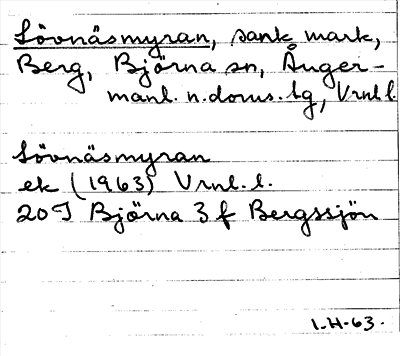 Lövnäsmyran, sank mark,
Berg, Björna sn, Ånger-
manl. n. doms. lg, Vrnl l.
Lövnäsmyran
ek (1963) Vrnl. l.
20I Björna 3 f Bergssjön
I.H-63.